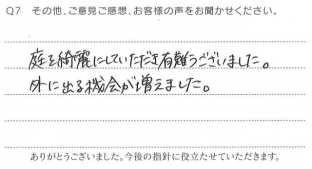 Q7 その他、ご意見ご感想、お客様の声をお聞かせください。
庭を綺麗にしていただき有難うございました。
外に出る機会が増えました。
ありがとうございました。今後の指針に役立たせていただきます。